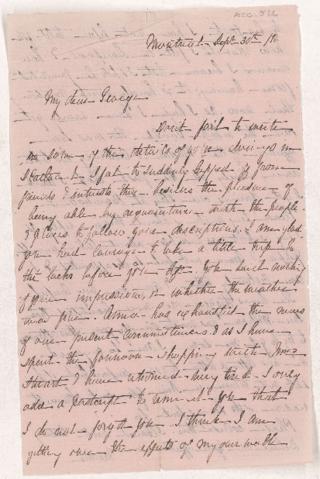 Montreal Sept 30th
My dear George
Don't fail to write
me some of the details of your doings in
I felt so suddenly stopped from
friends & interests there besides the pleasure of
being able by acquaintance with the people
& places to follow your descriptions. I am glad
you had courage to take a little trip to
the lakes before you left. You said nothing
of your impressions or whether the weather
was fine. Anna has exhausted the news
of our present circumstances & as I have
spent the forenoon shopping with Mrs
Stuart I have returned very tired. I only
add a postscript to remind you that
I do not forget you. I think I am
getting over the effects of my our walk